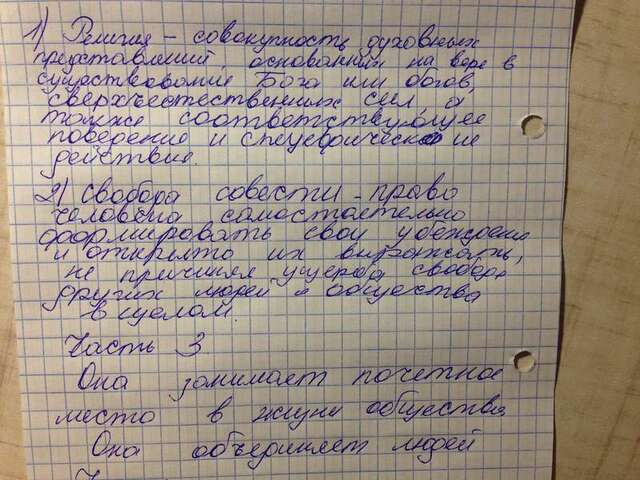 1) Религия - совокупность духовных
представлений, основанный на вере в
существование Бога или богов,
сверхъестественных сил, а
также соответствующее
поведение и специфические
действия.
2) Свобода совести - право
человека самостоятельно
формировать свои убеждения
и открыто их выражать,
не причиняя ущерба свободе
других людей и общества
в целом.
Часть 3
Она занимает почетное
место в жизни общества
Она объединяет людей